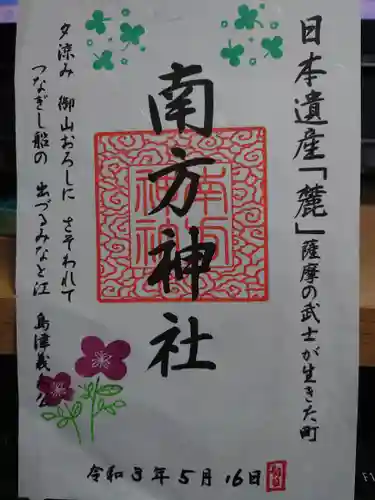 日本遺産「麓」薩摩の武士が生きた町
南方神社
夕涼み 御山おろしに さそわれて
つなぎし船の 出づるみなと江
島津義
公
令和3年5月16日